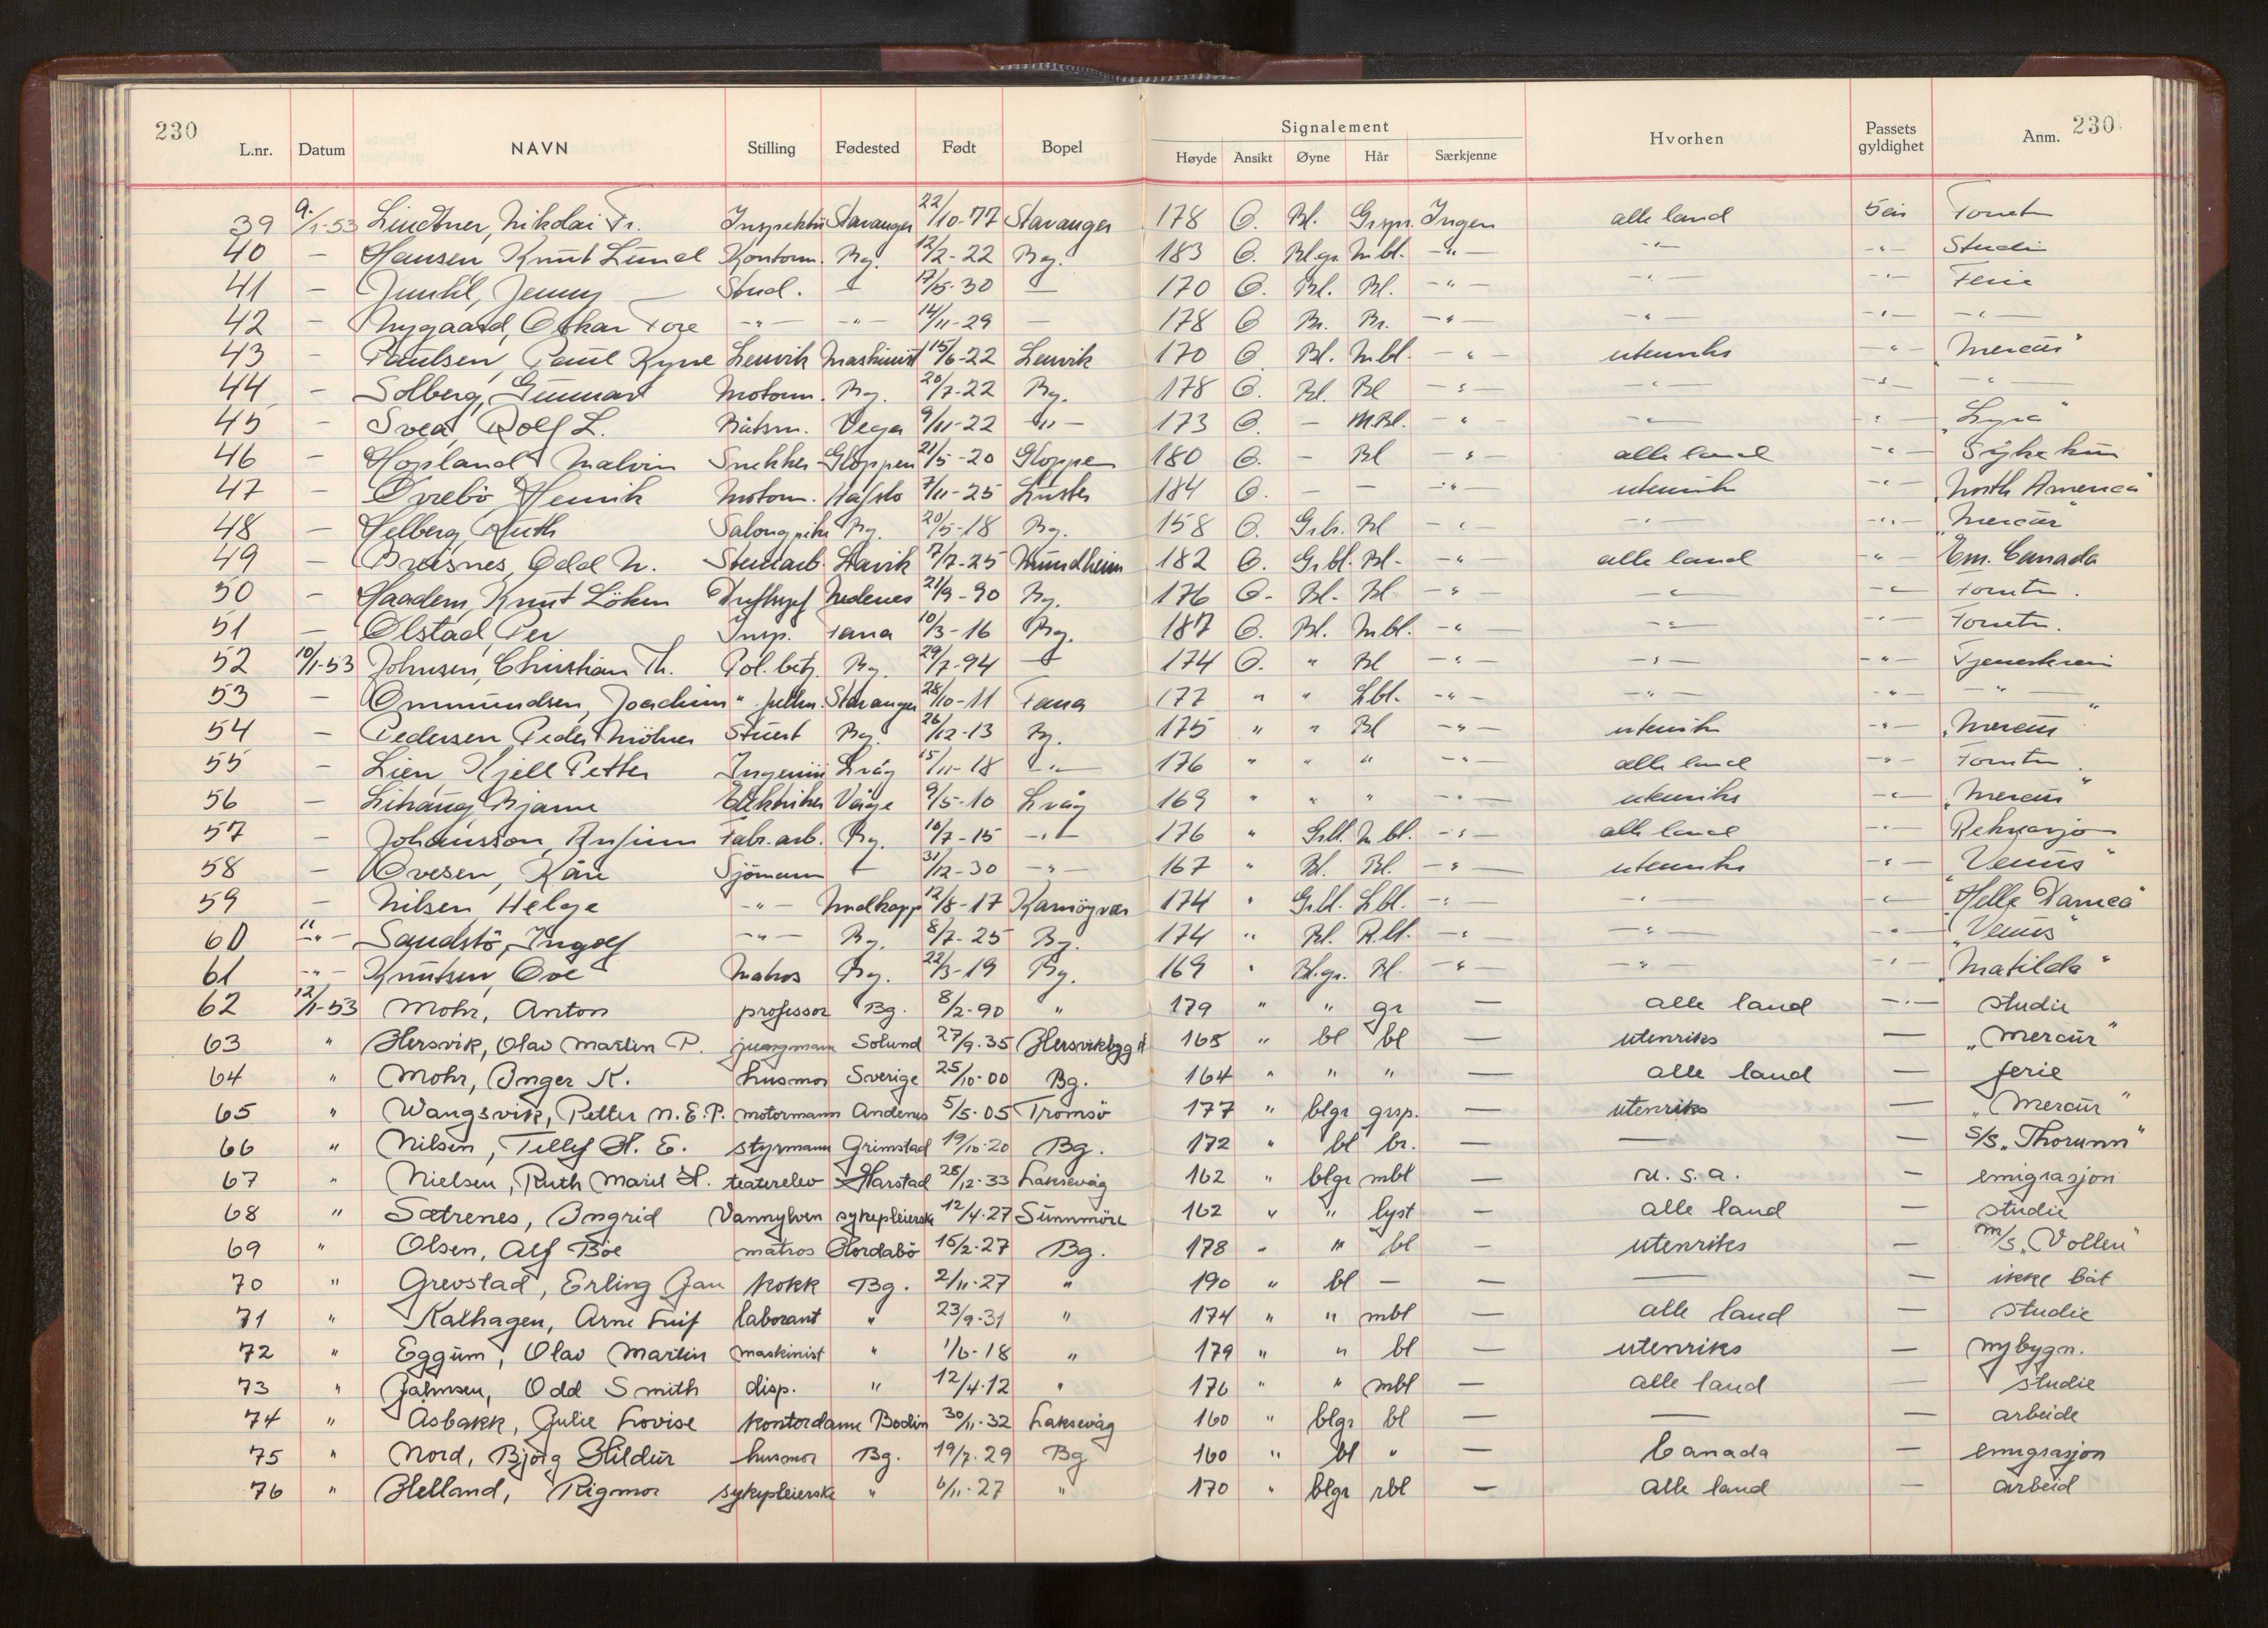 230
230
Signalement
L.nr. Datum NAVN Stilling Fødested Født Bopel Høyde Ansikt Øyne Hår Særkjenne Hvorhen Passets gyldighet Anm.
39 9/1-53 Lindtner, Nikolai Fr. Stavanger 22/10-77 Stavanger 178 O. Bl. Grspr. Ingen alle land 5 år
40 — Hansen Knut Lund Kontorm. Bg. 12/2-22 Bg. 183 O. Blgr. Mbl. -"- -"- -"- Studie
41 — Jenny Stud. — 17/5-30 — 170 O. Bl. Bl. -"- -"- -"- Ferie
42 — Nygaard, Oskar Tore -"- -"- 14/11-29 — 178 O Br. Br. -"- -"- -"- -"-
43 — Paulsen, Paul Leirvik Maskinist 15/6-22 Leirvik 170 O Bl. Mbl. -"- utenriks -"- „Mercur"
44 — Solberg, Gunnar Motorm. Bg. 20/7-22 Bg. 178 O. Bl. Bl -"- -"- -"- -"-
45 — Svea, Rolf L. Båtsm. Vega 9/11-22 -"- 173 O. — M.Bl. -"- -"- -"- „Lyra"
46 — Hopland Malvin Snekker Gloppen 21/5-20 Gloppen 180 O. — Bl -"- alle land -"-
47 — Øvrebö Henrik Motorm. Hafslo 7/11-25 Luster 184 O. — — -"- utenriks -"- „North America"
48 — Helberg Ruth Salongpike Bg. 20/5-18 Bg. 158 O. Grbr. Bl -"- -"- -"- „Mercur"
49 — Odd N. 7/7-25 Mundheim 182 O. Grbl. Bl- -"- alle land -"- Em. Canada
50 — Haadem, Knut Löken Nedenes 21/9-90 Bg. 176 O- Bl- Bl -"- -"- -"-
51 — Olstad, Per Insp. Fana 10/3-16 Bg. 187 O. Bl. Mbl. -"- -"- -"-
52 10/1-53 Johnsen, Christian Th. Pol.betj. Bg. 29/7-94 — 174 O. " Bl -"- -"- -"-
53 — Ommundsen, Joachim " Stavanger 28/10-11 Fana 177 " " Lbl. -"- -"- -"- -"-
54 — Pedersen Peder Möhner Stuert Bg. 26/12-13 Bg. 175 " " Bl -"- utenriks -"- „Mercur"
55 — Lien Kjell Petter Ingeniör Lvåg 15/11-18 -"- 176 " " " -"- alle land -"-
56 — Bjarne Elektriker Våge 9/5-10 Lvåg 169 " " " -"- utenriks -"- „Mercur"
57 — Johansson, Fabr.arb. Bg. 10/7-15 -"- 176 " Grbl. Mbl. -"- alle land -"- Rekreasjon
58 — Ovesen, Kåre Sjömann — 31/12-30 -"- 167 " Bl. Bl. -"- utenriks -"- „Venus"
59 — Nilsen, Helge -"- 12/8-17 Kamöyvær 174 " Grbl. Lbl. -"- -"- -"-
60 11 -"- Sandstö, Ingolf -"- Bg. 8/7-25 Bg. 174 " Bl. R.bl. -"- -"- -"- „Venus"
61 -"- Knutsen, Ove Matros Bg. 22/3-19 Bg. 169 " Bl.gr. Bl. -"- -"- -"- „Matilda"
62 12/1-53 Mohr, Anton professor Bg. 8/2-90 " 179 " " gr — alle land -"- studie
63 " Hersvik, Olav Martin P. jungmann Solund 27/9.35 Hersvikbygd 165 " bl bl — utenriks — „Mercur"
64 " Mohr, Inger K. husmor Sverige 25/10-00 Bg. 164 " " " — alle land — ferie
65 " Wangsvik, Petter N.E.P. motormann Andenes 5/5-05 Tromsö 177 " blgr grsp. — utenriks — „Mercur"
66 " Nilsen, Tellef H. E. styrmann Grimstad 19/10-20 Bg. 172 " bl br. — — — S/S „Thorunn"
67 " Nielsen, Ruth Marit H. teaterelev Harstad 28/12-33 Laksevåg 162 " blgr mbl — U.S.A. — emigrasjon
68 " Sætrenes, Ingrid Vannylven sykepleierske 12/4-27 Sunnmöre 162 " " lyst — alle land — studie
69 " Olsen, Alf Böe matros Hordabö 15/2-27 Bg. 178 " " bl — utenriks — M/S „Vollen"
70 " Grevstad, Erling Jan kokk Bg. 2/11-27 " 190 " bl — — — — ikke båt
71 " Kalhagen, Arne Leif laborant " 23/9-31 " 174 " " mbl — alle land — studie
72 " Eggum, Olav Martin maskinist " 1/6-18 " 179 " " bl — utenriks — nybygn.
73 " Jahnsen, Odd Smith disp. " 12/4-12 " 176 " " mbl — alle land — studie
74 " Åsbakk, Julie Lovise kontordame Bodin 30/11-32 Laksevåg 160 " blgr bl — — — arbeide
75 " Nord, Björg Hildur husmor Bg. 19/7.29 Bg 160 " bl " — Canada — emigrasjon
76 " Helland, Rigmor sykepleierske " 6/11-27 " 170 " blgr rbl — alle land — arbeid